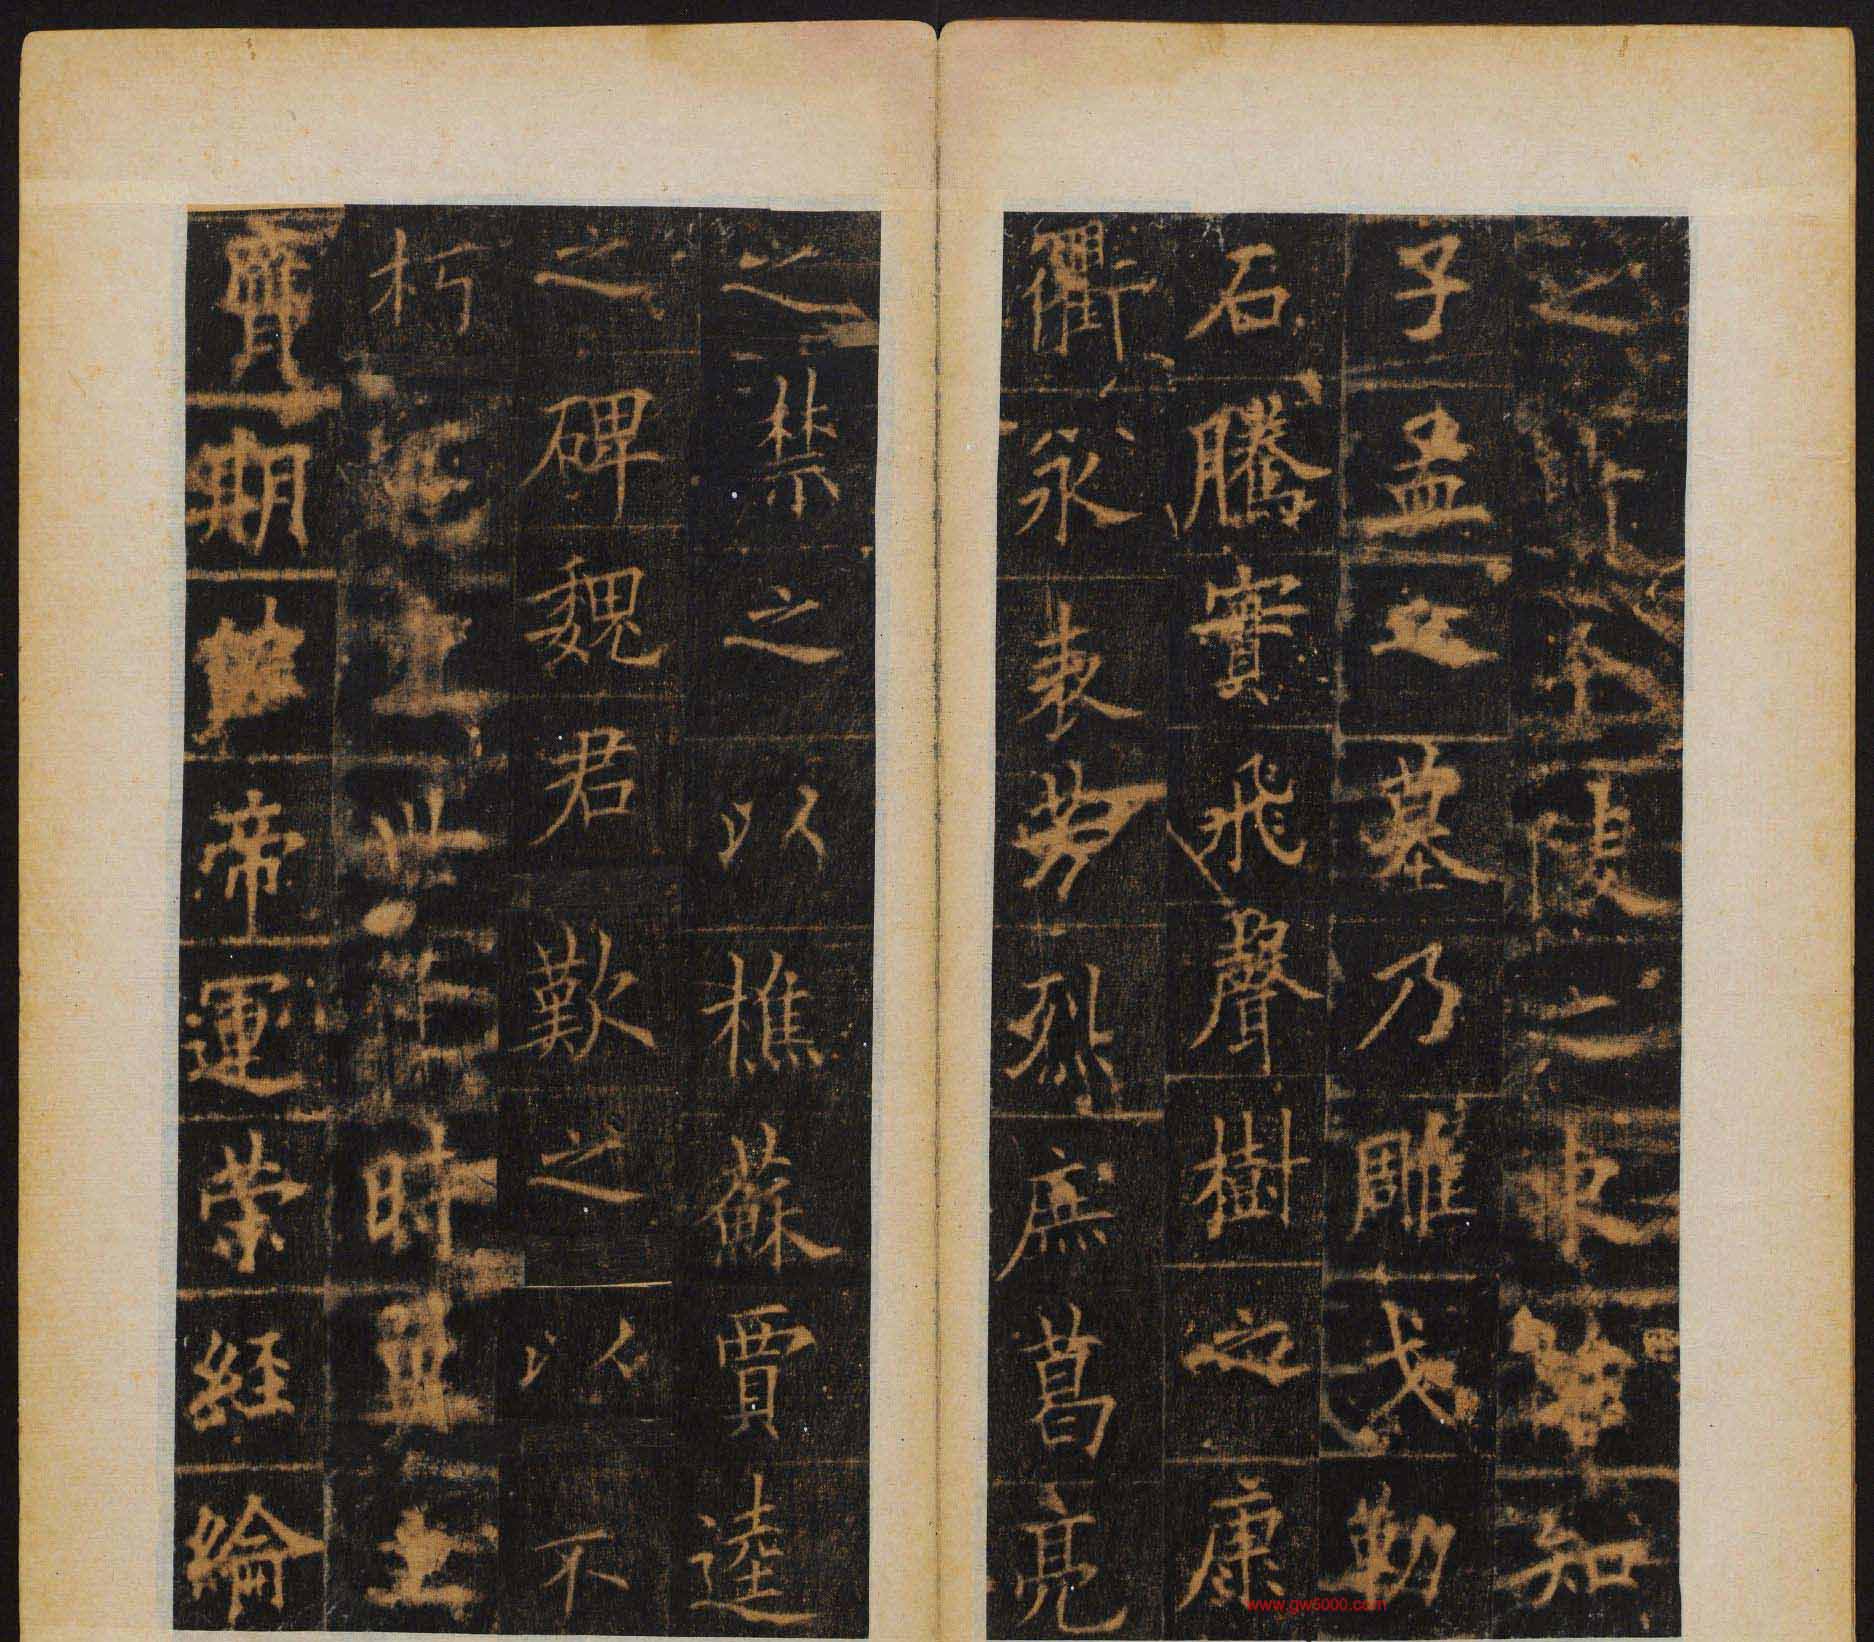 之不之東知
子孟之墓乃雕戈勒
石騰實飛聲樹之康
衢永表芳烈庶葛亮
之禁之以樵蘇賈逵
之碑魏君歎之以不
朽世時主
寶期帝運経綸
www.gw5000.com